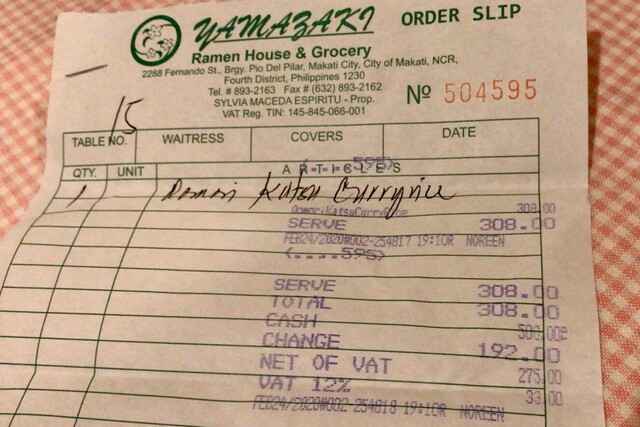 YAMAZAKI
ORDER SLIP
Ramen House & Grocery
2288 Fernando St., Brgy. Pio Del Pilar, Makati City, City of Makati, NCR,
Fourth District, Philippines 1230
Tel. # 893-2163 Fax # (632) 893-2162
SYLVIA MACEDA ESPIRITU - Prop.
VAT Reg. TIN: 145-845-066-001
No 504595
15
TABLE NO. WAITRESS COVERS DATE
QTY. UNIT ARTICLES
1 Oomori Katsu Curryrice
OomoriKatsuCurryRice 308.00
SERVE 308.00
FEB24/2020#002-254817 19:10R NOREEN
(....595)
SERVE 308.00
TOTAL 308.00
CASH 500.00
CHANGE 192.00
NET OF VAT 275.00
VAT 12% 33.00
FEB24/2020#002-254818 19:10R NOREEN